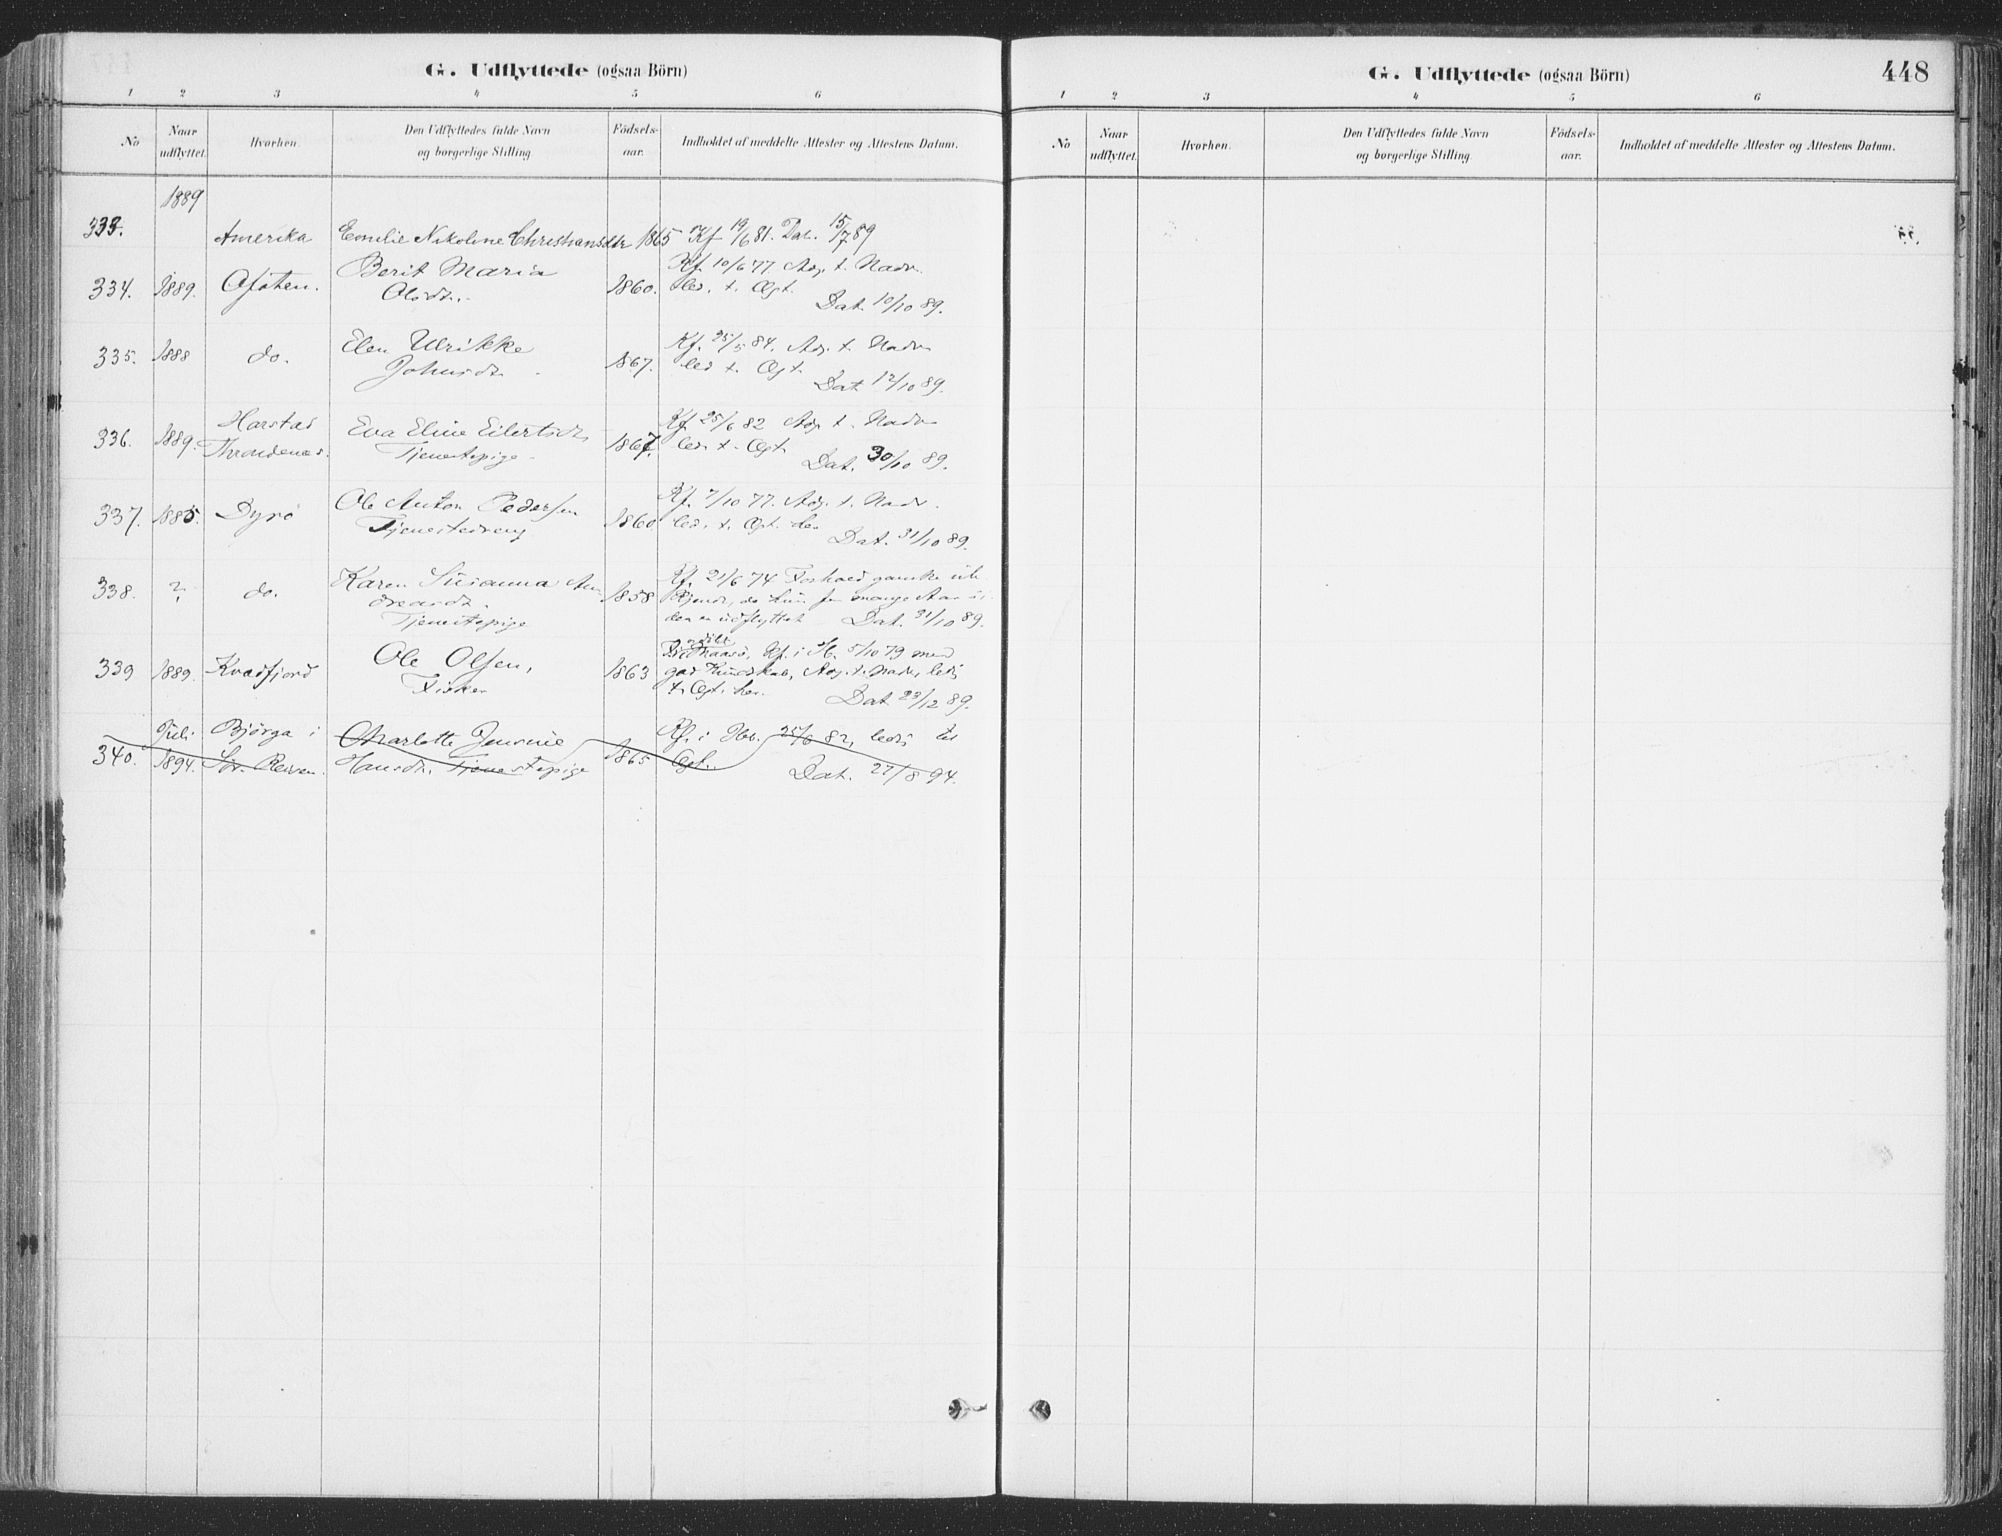 G. Udflyttede (ogsaa Börn)
1 2 3 4 5 6
No Naar udflyttet. Hvorhen. Den Udflyttedes fulde Navn og borgerlige Stilling Födsels-aar. Indholdet af meddelte Attester og Attestens Datum.
1889
333. Amerika Emilie Nikoline Christiansdtr 1865 Kf 19/6 81. Dat. 15/7 89
334. 1889. Ofoten. Berit Maria 1860. Kf. 10/6 77. Adg. t. Nadv.
Olsdtr. led. t. Ægt.
Dat. 10/10 89.
335. 1888 do. Elen Ulrikke 1867. Kf. 25/5 84. Adg. t. Nadv
Johnsdtr. led t. Ægt.
Dat 12/10 89.
336. 1889. Harstad Eva Eline Eilertsdtr 1867. Kf 25/6 82 Adg t. Nadv
Throndenes. Tjenestepige led. t. Ægt.
Dat. 30/10 89.
337. 1885. Dyrö Ole Anton Pedersen 1860 Kf. 7/10 77. Adg. t. Nadv.
Tjenestedreng led. t. Ægt.
Dat. 31/10 89.
338. ? do. Karen Susanna An- 1858 Kf. 21/6 74 Forhold ganske ube-
dreasdtr. kjendt, da hun for mange Aar si-
Tjenestepige den er udflyttet Dat. 31/10 89.
339 1889. Kvædfjord Ole Olsen, 1863 Kf. i 5/10 79 med
Fisker god Kundskab, Adg. t. Nadv, ledig
t. Ægt. her. Dat 23/12 89.
340. Juli Bjørga i Charlotte Jensine 1865 Kf. i 25/6 82, ledig til
1894. Sör-Reisen. Hansdtr. Tjenestepige Ægt. Dat. 27/8 94.
G. Udflyttede (ogsaa Börn) 448
1 2 3 4 5 6
No Naar udflyttet. Hvorhen. Den Udflyttedes fulde Navn og borgerlige Stilling Födsels-aar. Indholdet af meddelte Attester og Attestens Datum.